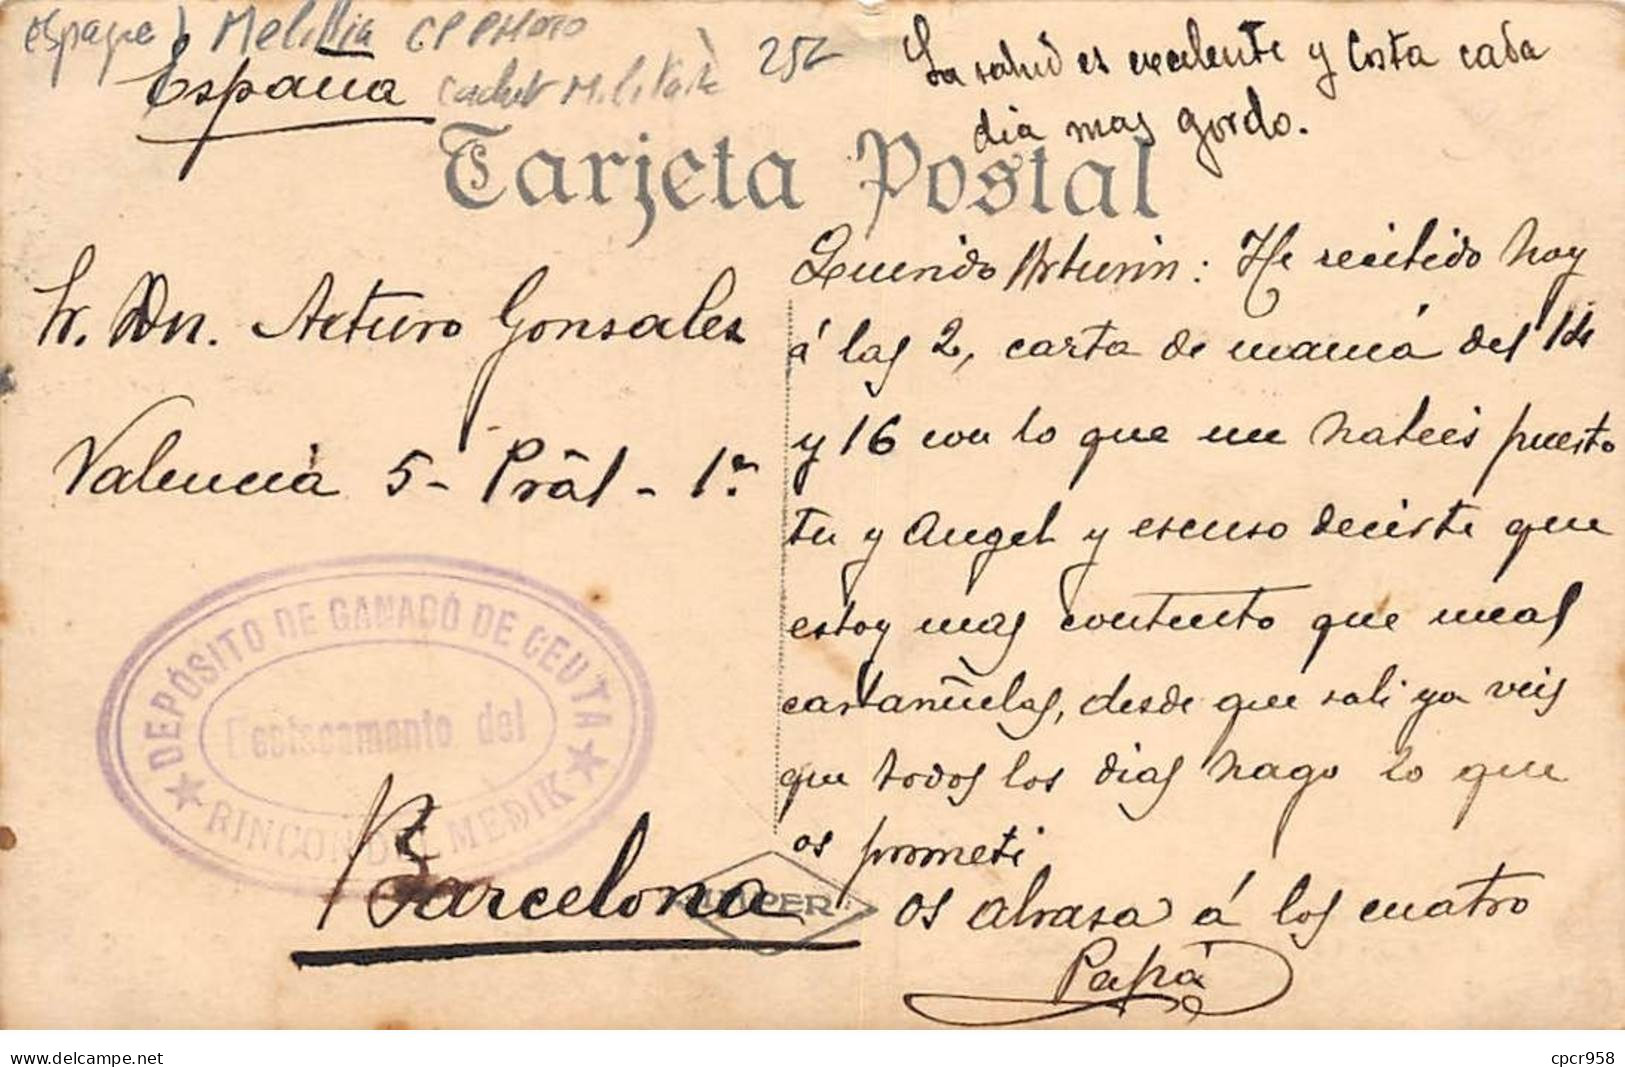 espagne Melillia CP PHOTO
cachet Militaire 25L
España
La salud es excelente y Costa cada
dia mas gordo.
Tarjeta Postal
Querido Arturin: He recibido hoy
á las 2, carta de mamá del 14
y 16 con lo que me habeis puesto
tu y Angel y escuso decirte que
estoy mas contento que unas
castañuelas, desde que sali ya veis
que todos los dias hago lo que
os prometi
os abrasa á los cuatro
Papá
Sr. Dn. Arturo Gonsales
Valencia 5 - Prâl - 1ª
Barcelona
DEPÓSITO DE GANADO DE CEUTA
Destacamento del
RINCON DEL MEDIK
cpcr958